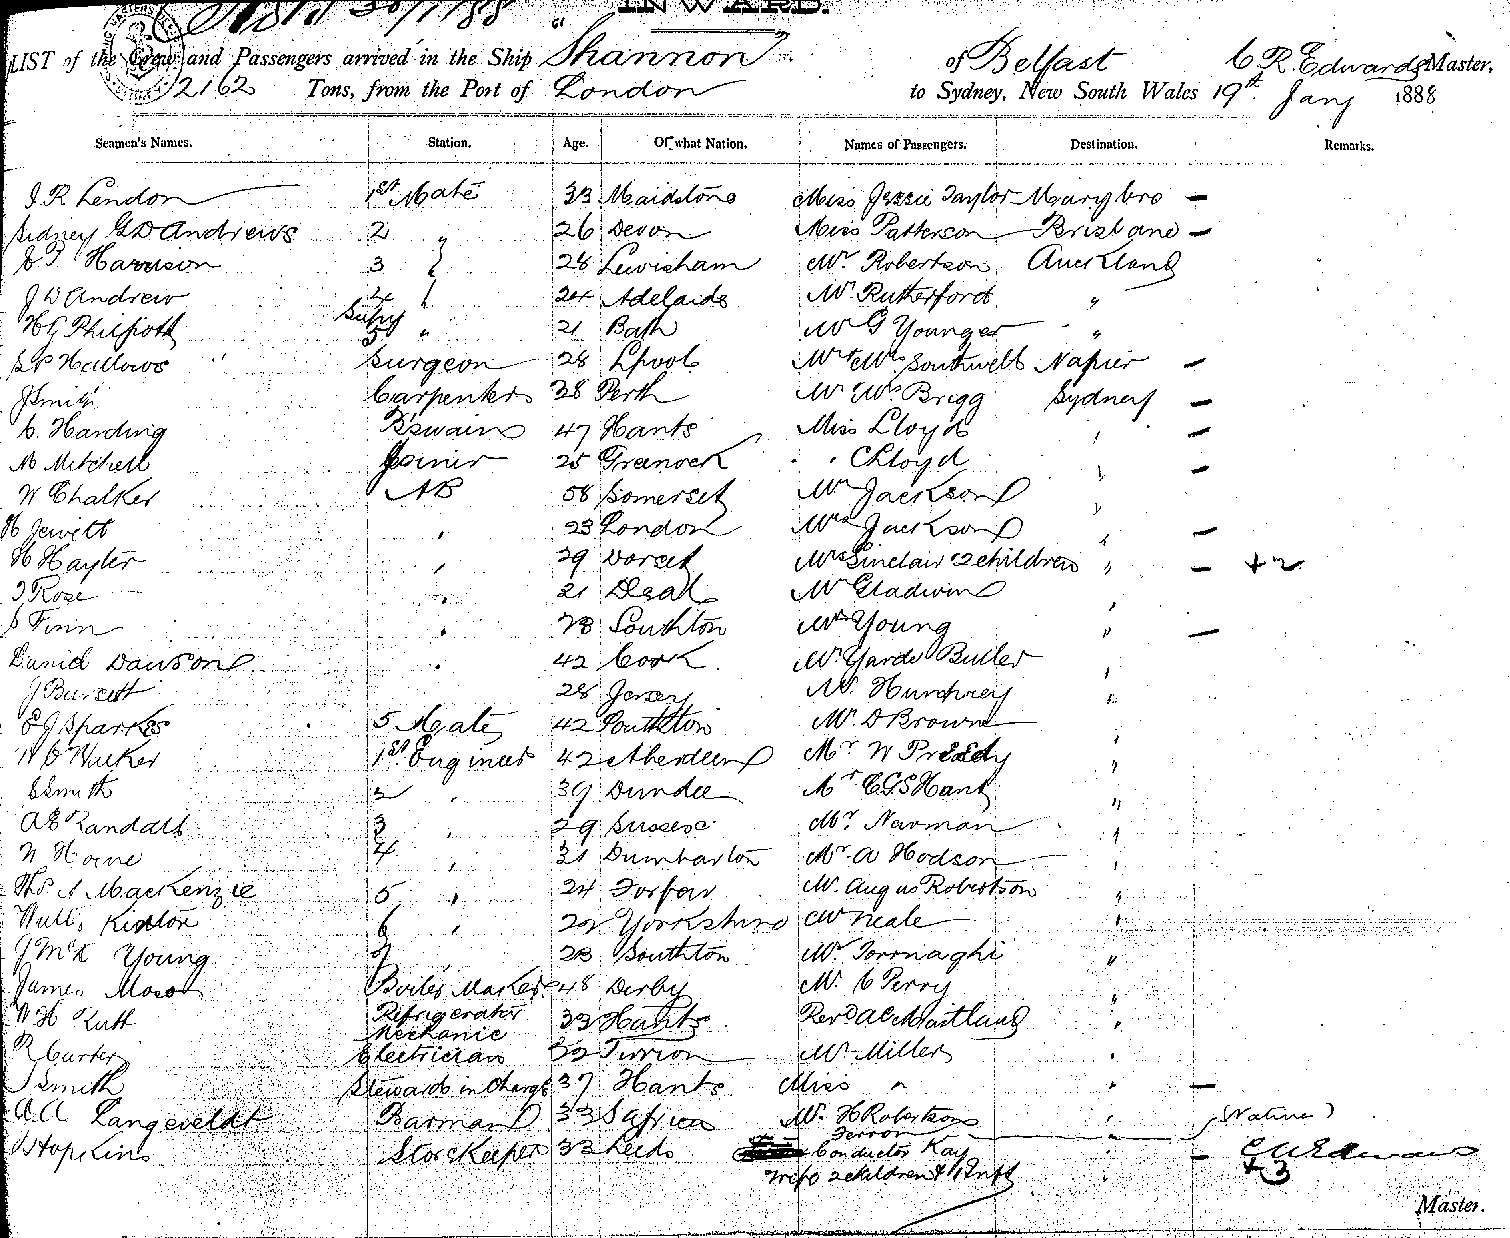 INWARD.
LIST of the Crew and Passengers arrived in the Ship "Shannon" of Belfast C R Edwards Master,
2162 Tons, from the Port of London to Sydney, New South Wales 19th Jany 1888
Seamen's Names. Station. Age. Of what Nation. Names of Passengers. Destination. Remarks.
J R Lendon 1st Mate 33 Maidstone Miss Jessie Taylor Marybro —
Sidney G D Andrews 2 " 26 Devon Miss Patterson Brisbane —
Harrison 3 28 Lewisham Mr Robertson Auckland
J D Andrew 4 24 Adelaide Mr Rutherford "
H G Philpott Supy 5 " 21 Bath Mr G Younger "
Hallows Surgeon 28 Lpool Mr & Mrs Southwell Napier —
J Smith Carpenter 38 Perth Mr Mrs Brigg Sydney —
C. Harding Bswain 47 Hants Miss Lloyd " —
M Mitchell Joiner 25 Greenock " C Lloyd " —
W Chalker AB 58 Somerset Mr Jackson "
H Jewett " 23 London Mrs Jackson " —
H Hayter " 29 Dorset Mrs Sinclair 2 children " — +2
Rose " 21 Deal Mr Gladwin "
Finn " 28 Southton Mrs Young " —
Daniel Dawson " 42 Cork Mr Yarde Buller "
J Burcett 28 Jersey Mr. Humphrey "
E J Sparkes 5 Mate 42 Southton Mr D Brown "
Hucker 1st Engineer 42 Aberdeen Mr W Preedy "
Smith 2 " 39 Dundee Mr C G S Hant "
A E Randall 3 " 29 Sussex Mr Norman "
W Horne 4 " 31 Dumbarton Mr A Hodson "
Thos A MacKenzie 5 " 24 Forfar Mr Angus Robertson "
Willi Kinton 6 " 22 Yorkshire Mr Neale "
J McK Young 7 23 Southton Mr Tornaghi "
James Moson Boiler Maker 48 Derby Mr C Perry "
W H Rutt Refrigerator Mechanic 33 Hants Revd Maitland "
R Carter Electrician 32 Mr Miller "
J Smith Stewards in Charge 37 Hants Miss " " —
A. A Langeveldt Barman 33 S Africa Mr. H Robertson " (Native)
Hopkins Storekeeper 33 Leeds Conductor Kay " — C R Edwards
Wife 2 children & 1 Inft " +3
Master.